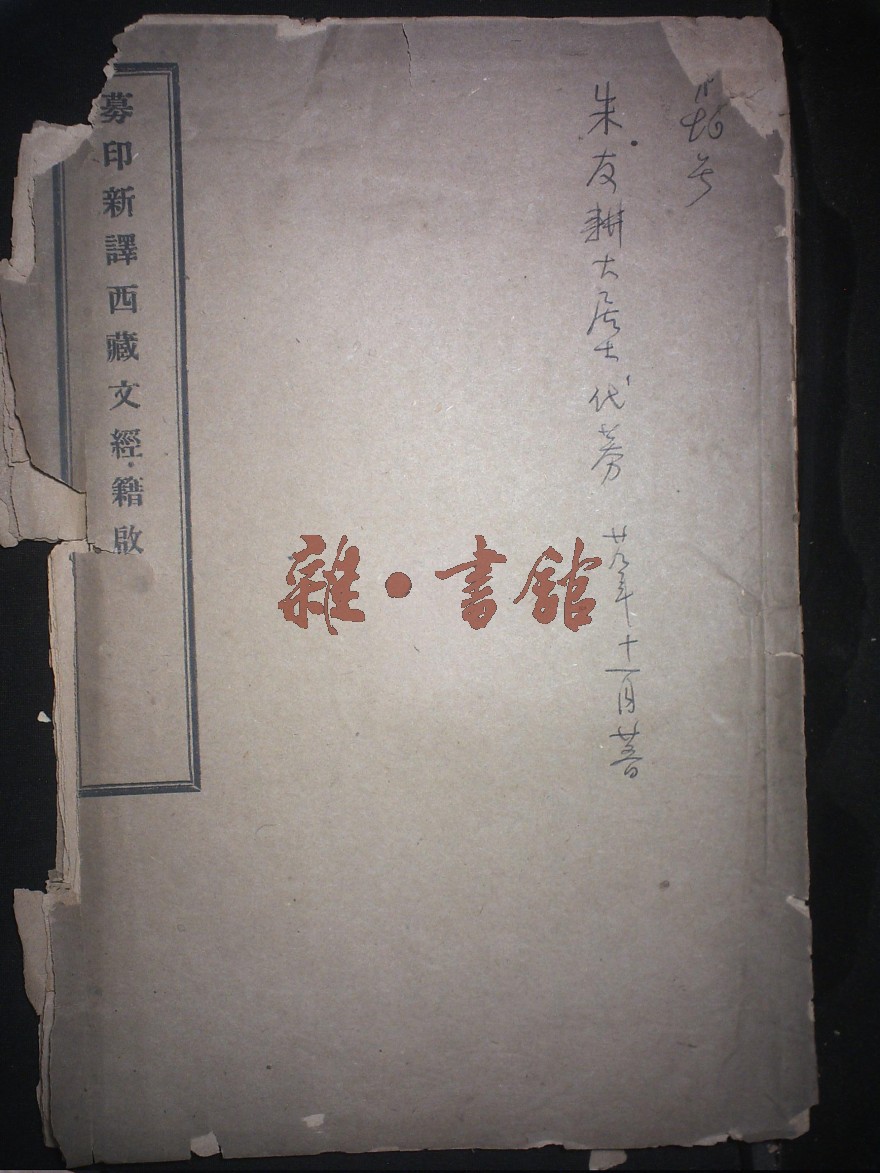 号
朱友耕大居士代募 廿九年十一月廿音
雜·書館
募印新譯西藏文經籍啟